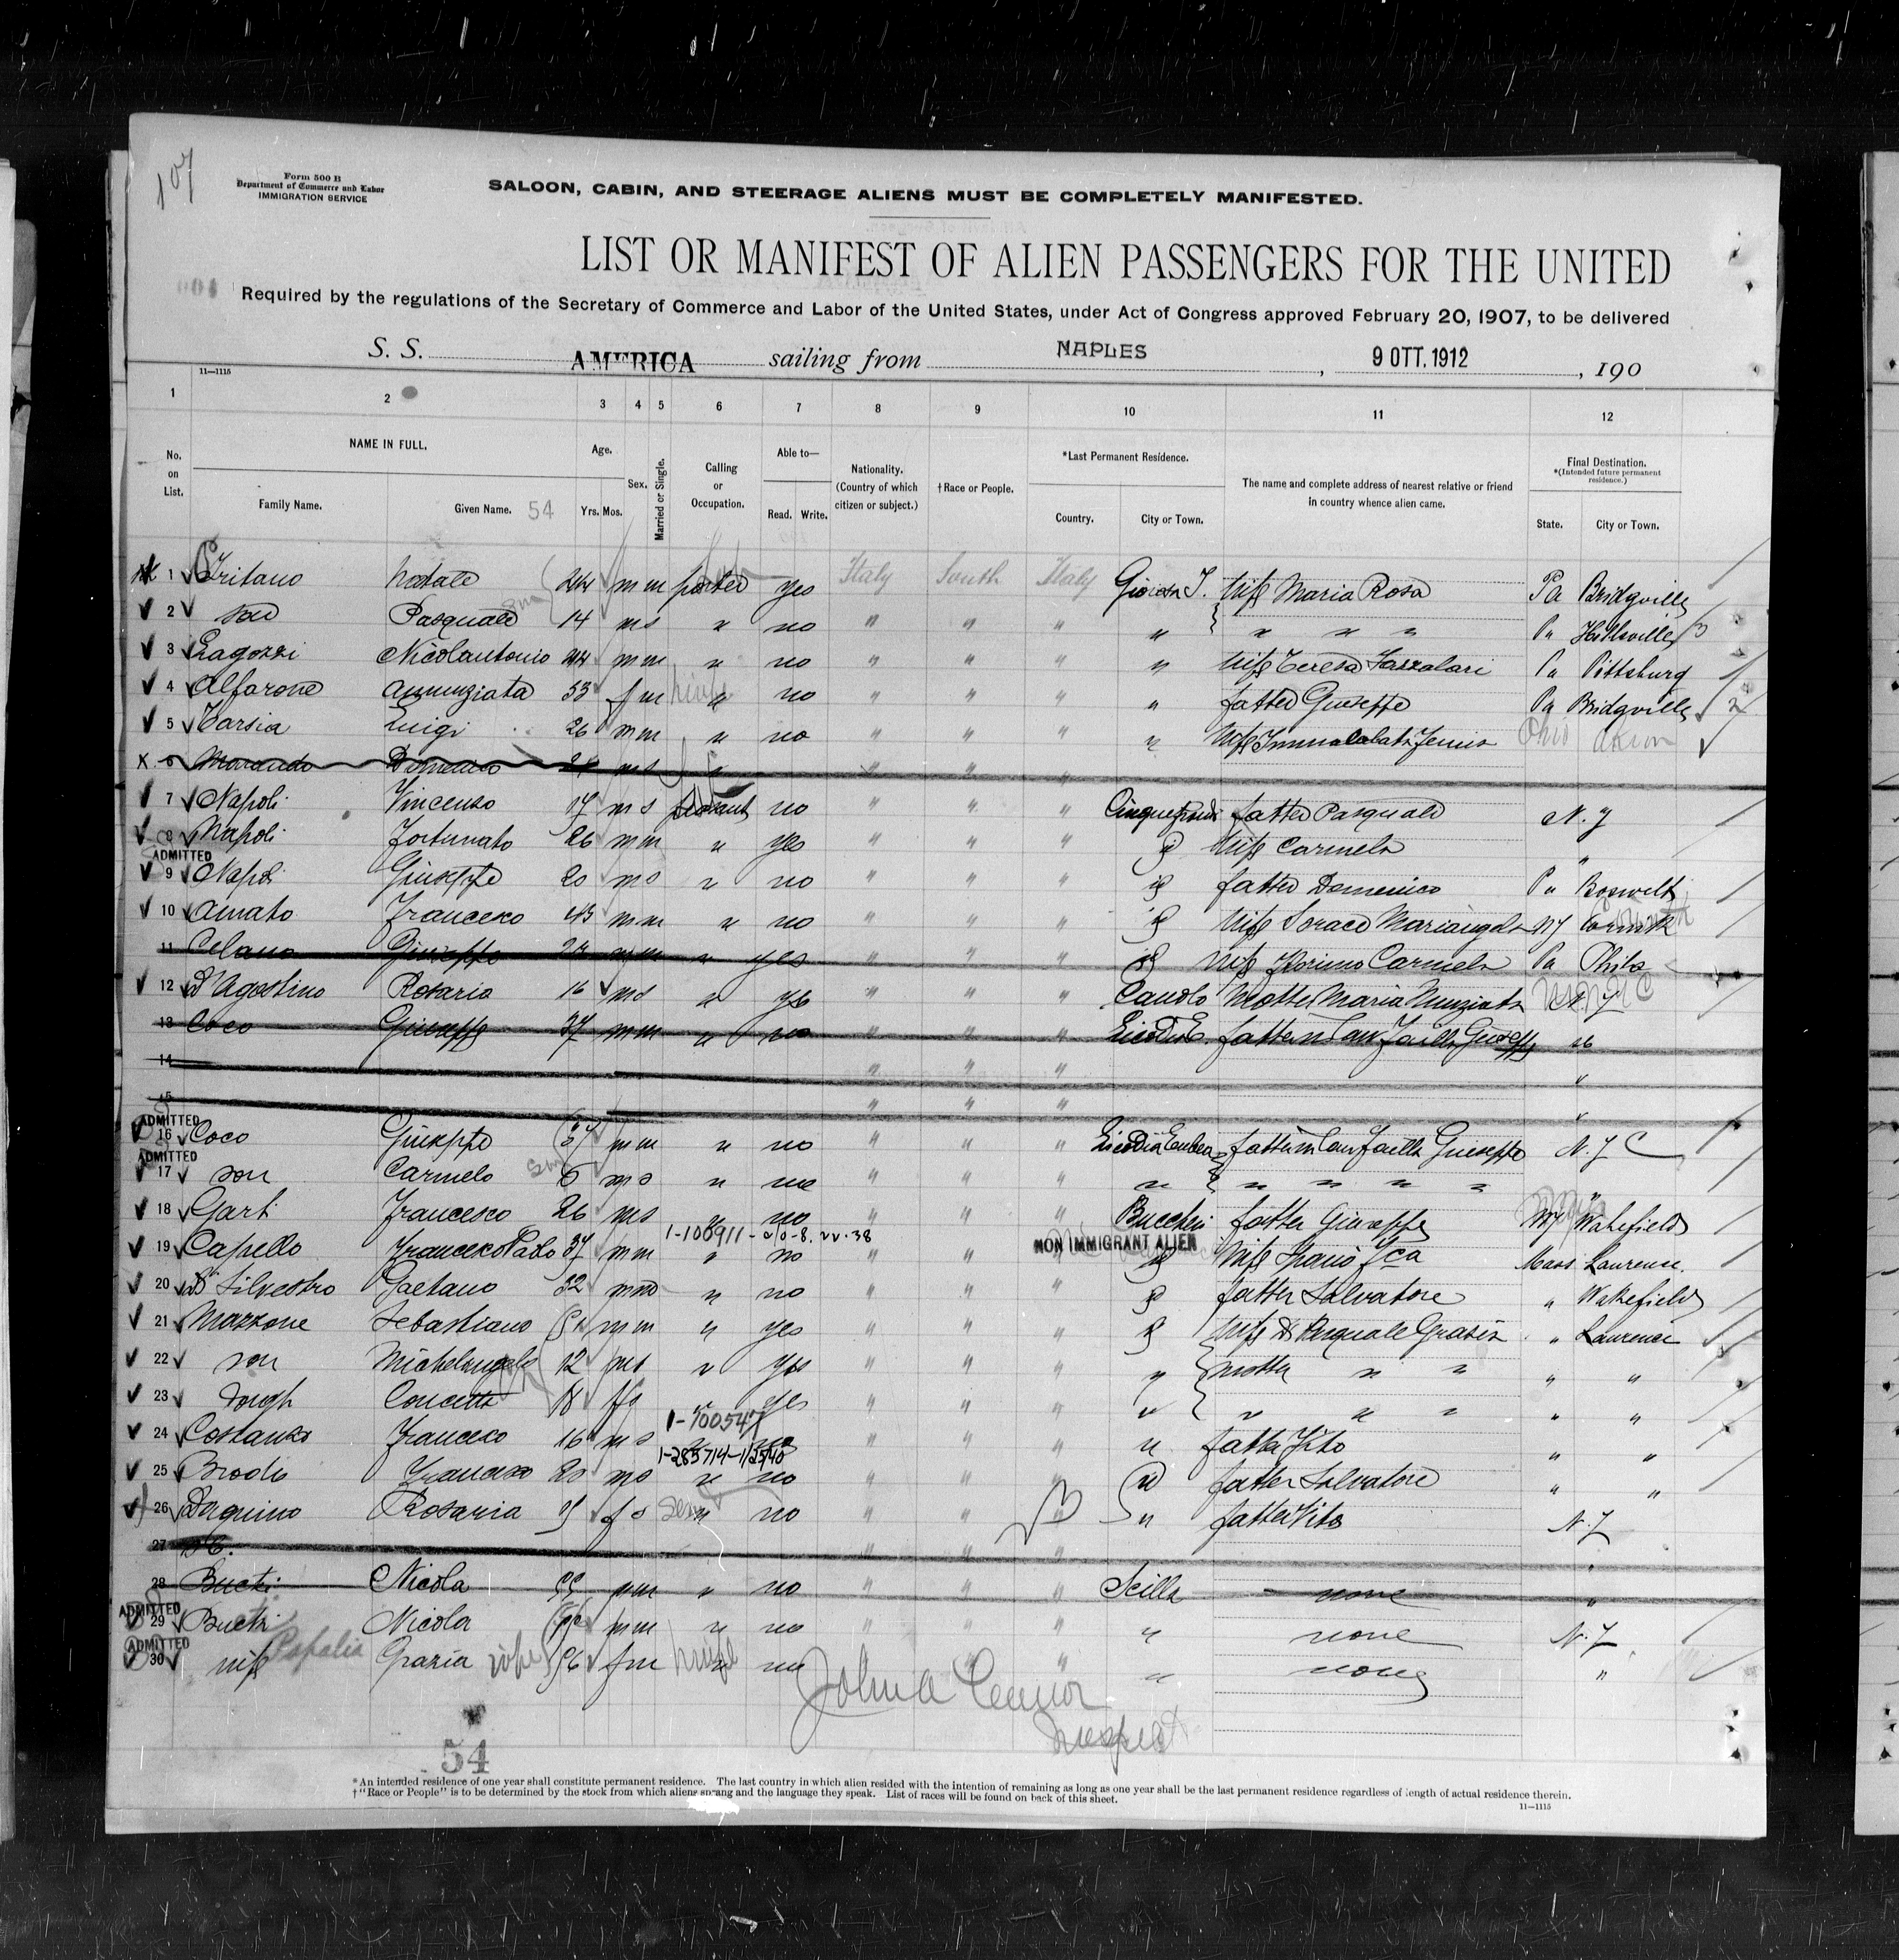 107
Form 500 B
Department of Commerce and Labor
IMMIGRATION SERVICE
SALOON, CABIN, AND STEERAGE ALIENS MUST BE COMPLETELY MANIFESTED.
LIST OR MANIFEST OF ALIEN PASSENGERS FOR THE UNITED
Required by the regulations of the Secretary of Commerce and Labor of the United States, under Act of Congress approved February 20, 1907, to be delivered
S. S. AMERICA sailing from NAPLES, 9 OTT. 1912, 190
11—1115
1 2 3 4 5 6 7 8 9 10 11 12
No. on List. NAME IN FULL. Family Name. Given Name. 54 Age. Yrs. Mos. Sex. Married or Single. Calling or Occupation. Able to— Read. Write. Nationality. (Country of which citizen or subject.) †Race or People. *Last Permanent Residence. Country. City or Town. The name and complete address of nearest relative or friend in country whence alien came. Final Destination. *(Intended future permanent residence.) State. City or Town.
1 Fritano Natale 44 m m yes Italy South Italy Gioiosa J. wife Maria Rosa Pa Bridgville
2 son Pasquale 14 m s " no " " " " " " " Pa Hillsville
3 Nicolantonio 44 m m " no " " " " wife Teresa Pa Pittsburg
4 Alfarone Annunziata 33 f m no " " " " father Giuseppe Pa Bridgville
5 Tarsia Luigi 26 m m " no " " " " wife Ohio Akron
6 Morando Domenico m s " " " "
7 Napoli Vincenzo 17 m s peasant no " " " father Pasquale N. Y
8 Napoli Fortunato 26 m m " yes " " " id wife Carmela "
ADMITTED
9 Napoli Giuseppe 20 m s " no " " " id father Domenico Pa Boswell
10 Amato Francesco 43 m m " no " " " id wife Sorace Mariangela NY
11 Celano Giuseppe m m " yes " " " id wife Carmela Pa Phila
12 D'Agostino Rosario 16 m s " yes " " " Canolo Mother Maria Nunziata N Y
13 Coco Giuseppe 37 m m " no " " " Licodia E. father in law Failla Giuseppe
14 " " " "
15 " " " "
ADMITTED
16 Coco Giuseppe 37 m m " no " " " Licodia Eubea father in law Failla Giuseppe N. Y C
ADMITTED
17 son Carmelo 6 m s " no " " " " " " " " "
18 Francesco 26 m s " no " " Buccheri father Giuseppe Wakefield
1-100911 NON IMMIGRANT ALIEN
19 Capello Francesco Paolo 37 m m " no " " " id wife Mass Laurence.
20 Di Silvestro Gaetano 32 m " no " " " id father Salvatore " Wakefield
21 Mazzone Sebastiano m m " yes " " " id wife Di Pasquale Grazia " Laurence
22 son Michelangelo 12 m s " yes " " " " mother " " " "
23 daugh Concetta 18 f s " yes " " " " " " " " "
1-100547
24 Costanzo Francesco 16 m s " no " " " " father Vito " "
1-285714-1/25/40
25 Brodo Francesco 20 m s " no " " " " father Salvatore " "
26 Daquino Rosaria f s " no " " " " father Vito N. Y
27 " " " "
28 Bucti Nicola 55 m m " no " " " Scilla none "
ADMITTED
29 Bucti Nicola m m " no " " " " none N. Y
ADMITTED
30 wife Papalia Grazia wife 56 f m " no " " " none "
John A Connor
Inspect
54
*An intended residence of one year shall constitute permanent residence. The last country in which alien resided with the intention of remaining as long as one year shall be the last permanent residence regardless of length of actual residence therein.
†"Race or People" is to be determined by the stock from which aliens sprang and the language they speak. List of races will be found on back of this sheet.
11—1115